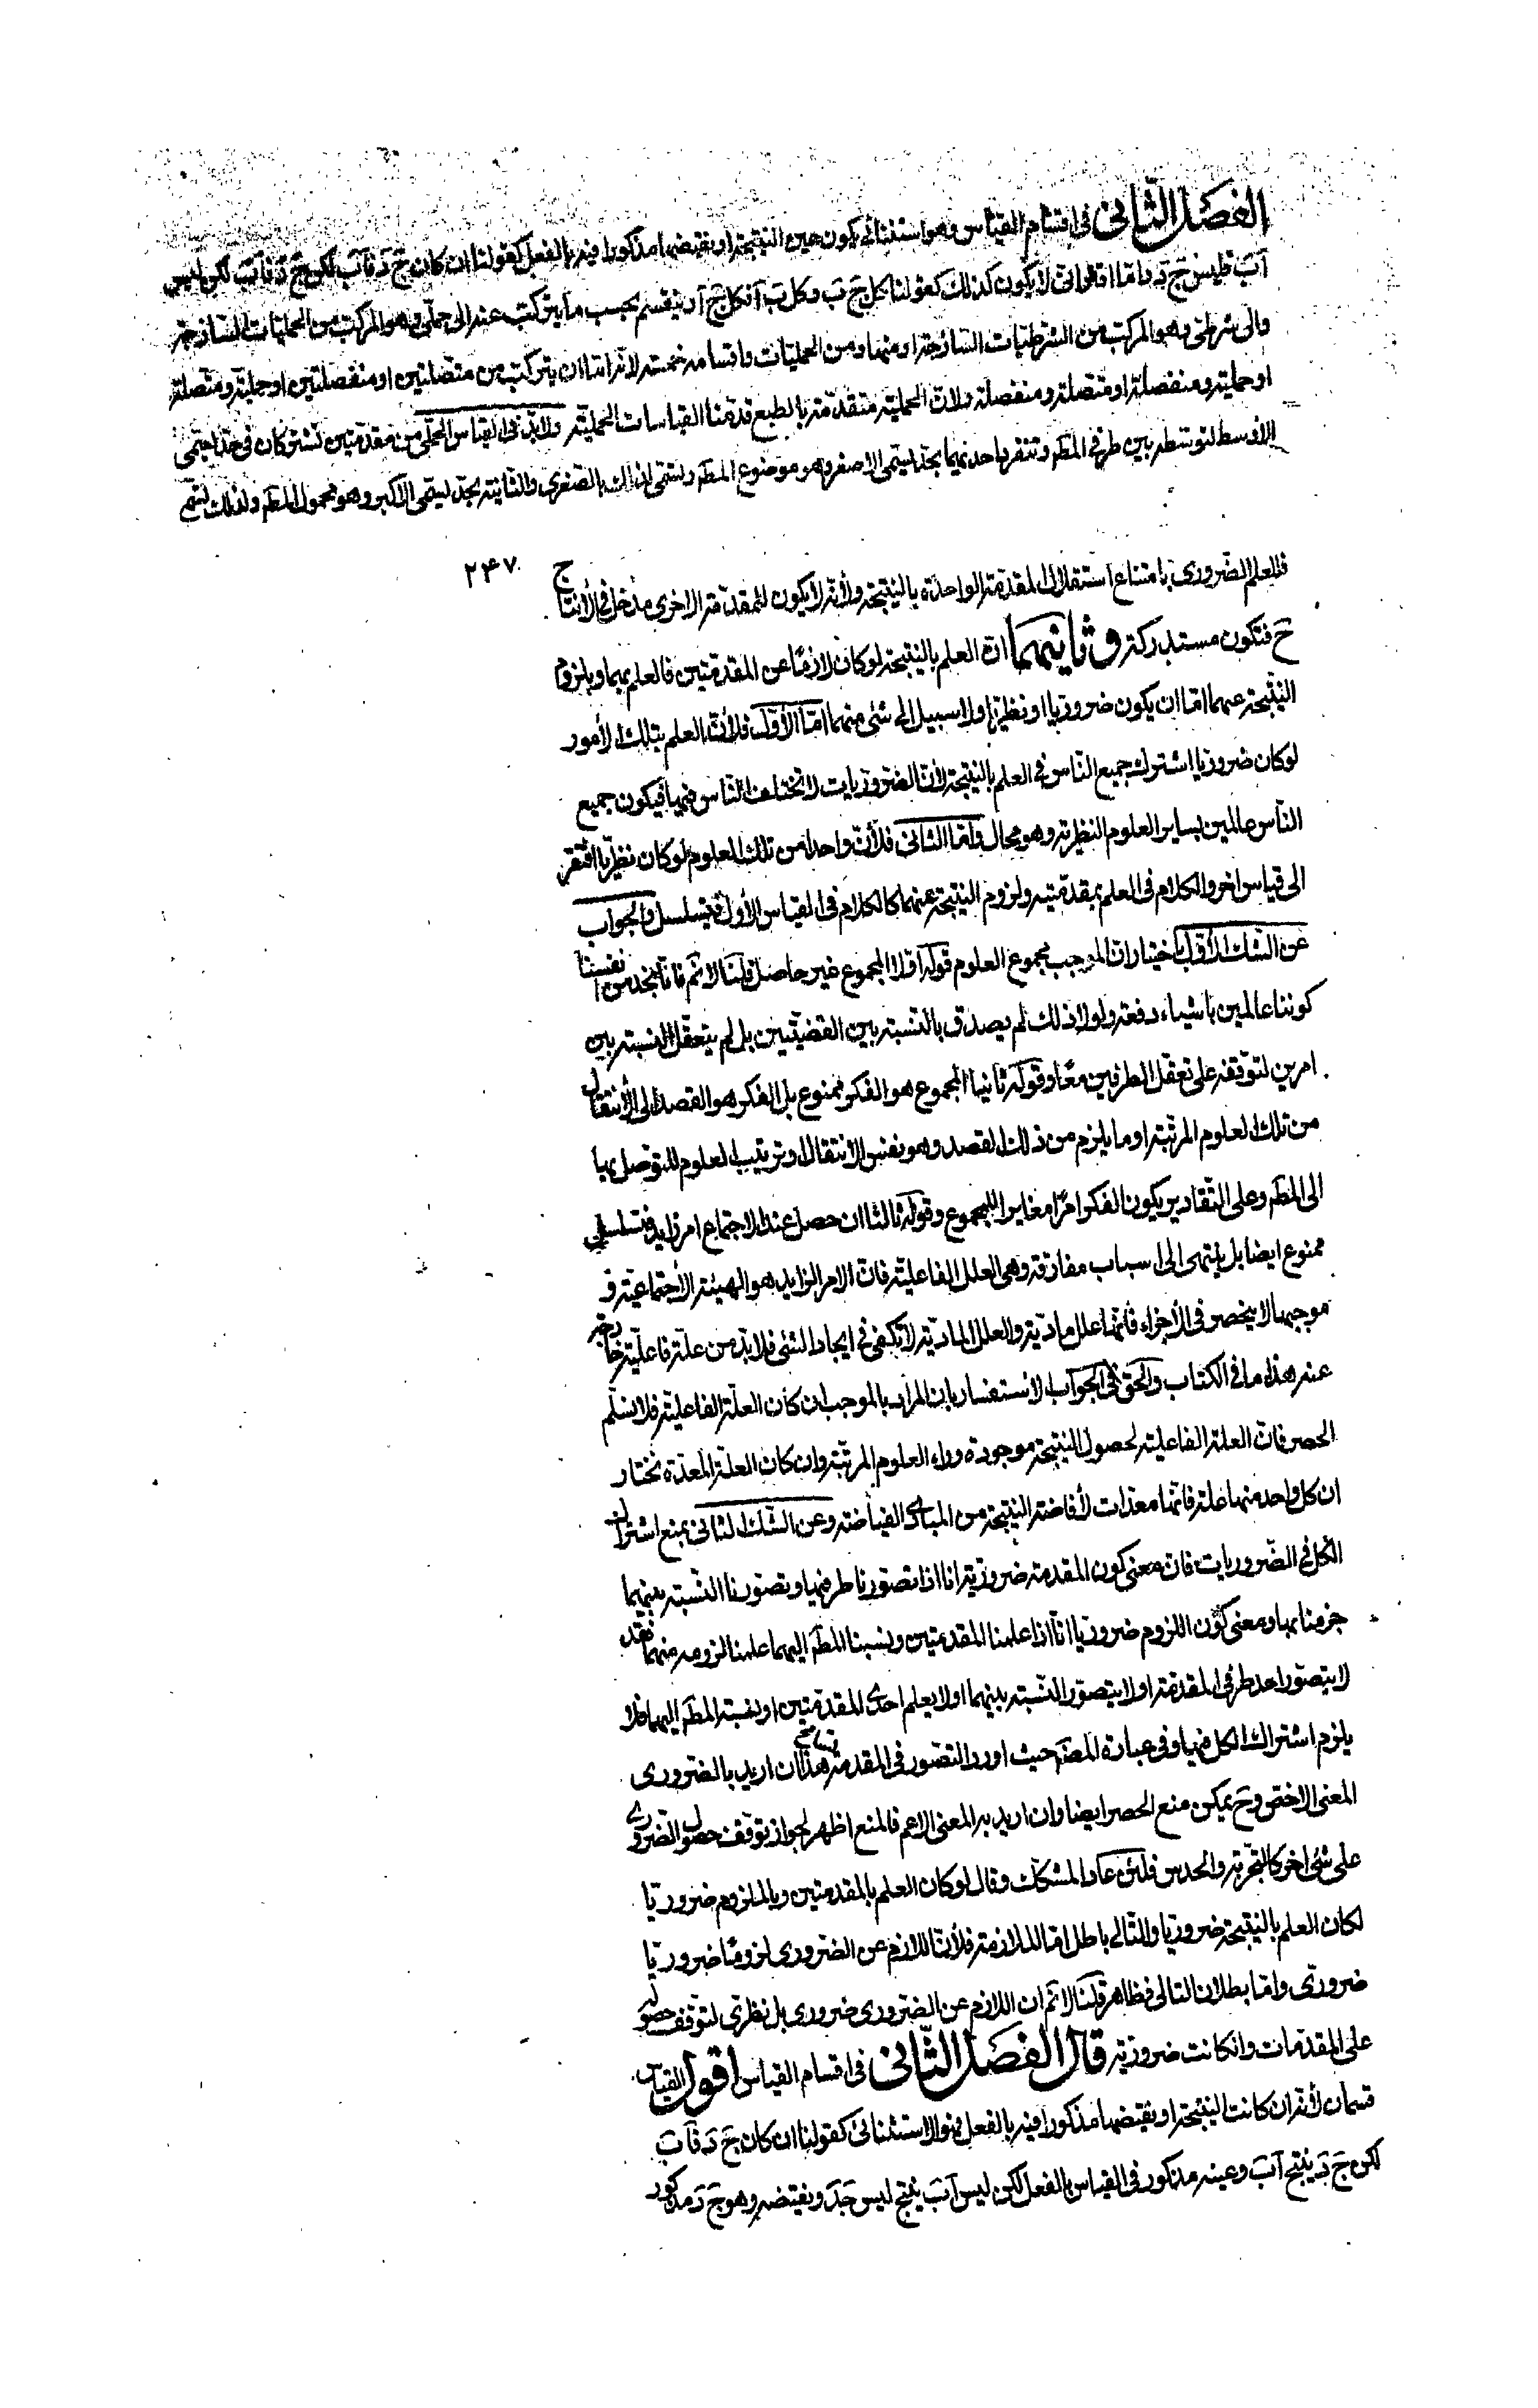 الفصل الثانى فى اقسام القياس وهو استثنائى يكون عين النتيجة او نقيضها مذكورا فيه بالفعل كقولنا ان كان ج د فاب لكن ج د فاب لكن ليس
اب فليس ج د واما اقترانى لا يكون كذلك كقولنا كل ج ب وكل ب آ فكل ج آ وينقسم بحسب ما يتركب عنه الى حملى وهو المركب من الحمليات الساذجة
والى شرطى وهو المركب من الشرطيات الساذجة او منها ومن الحمليات واقسامه خمسة لانه اما ان يتركب من متصلتين او منفصلتين او حملية ومتصلة
او حملية ومنفصلة او متصلة ومنفصلة ولان الحملية متقدمة بالطبع قدمنا القياسات الحملية ولابد فى القياس الحملى من مقدمتين تشتركان فى حد يسمى
الاوسط لتوسطه بين طرفى المطه وتنفرد احديهما بحد يسمى الاصغر وهو موضوع المطه وتسمى الصغرى والثانية بحد يسمى الاكبر وهو محمول المطه ولذلك تسمى
٢٤٧
فللعلم الضرورى بامتناع استقلال المقدمة الواحدة بالنتيجة ولانه لا يكون للمقدمة الاخرى مدخل فى الانتاج
ح فتكون مستدركة وثانيهما ان العلم بالنتيجة لو كان لازما عن المقدمتين فالعلم بهما وبلزوم
النتيجة عنهما اما ان يكون ضروريا او نظريا ولا سبيل الى شئ منهما اما الاول فلأن العلم بتلك الأمور
لو كان ضروريا اشترك جميع الناس فى العلم بالنتيجة لان الضروريات لا تختلف الناس فيها فيكون جميع
الناس عالمين بساير العلوم النظرية وهو محال واما الثانى فلأن واحدا من تلك العلوم لو كان نظريا افتقر
الى قياس اخر والكلام فى العلم بمقدمتيه ولزوم النتيجة عنهما كالكلام فى القياس الأول فيتسلسل والجواب
عن الشك الأول باختيار ان الموجب مجموع العلوم قوله اولا المجموع غير حاصل قلنا لا نم فانا نجد من انفسنا
كوننا عالمين باشياء دفعة ولولا ذلك لم يصدق بالنسبة بين القضيتين بل لم يتعقل النسبة بين
امرين لتوقفه على تعقل الطرفين معا وقوله ثانيا المجموع هو الفكر ممنوع بل الفكر هو القصد الى الأنتقال
من تلك العلوم المرتبة او ما يلزم من ذلك القصد وهو نفس الانتقال او ترتيب العلوم للتوصل بها
الى المطه وعلى التقادير يكون الفكر امرا مغايرا للمجموع وقوله ثالثا ان حصل عند الاجتماع امر زايد فتسلسل
ممنوع ايضا بل ينتهى الى اسباب مفارقة وهى العلل الفاعلية فان الامر الزايد هو الهيئة الأجتماعية و
موجبها لا ينحصر فى الأجزاء فأنها علل مادية والعلل المادية لا تكفى فى ايجاد الشئ فلابد من علة فاعلية خارجة
عنه هذا ما فى الكتاب والحق فى الجواب الاستفسار بان المراد بالموجب ان كان العلة الفاعلية فلا نسلم
الحصر فان العلة الفاعلية لحصول النتيجة موجودة وراء العلوم المرتبة وان كان العلة المعدة نختار
ان كل واحد منها علة فانها معدات لأفاضة النتيجة من المبادى الفياضة وعن الشك الثانى بمنع اشتراك
الكل فى الضروريات فان معنى كون المقدمة ضرورية انا اذا تصورنا طرفيها وتصورنا النسبة بينهما
جزمنا بها ومعنى كون اللزوم ضروريا انا اذا علمنا المقدمتين ونسبنا المطه اليهما علمنا لزومه منهما فقد
لا يتصور احد طرفى المقدمة او لا يتصور النسبة بينهما او لا يعلم احدى المقدمتين او نسبة المطه اليهما فلا
يلزم اشتراك الكل فيها وفى عبارة المصه حيث اورد التصور فى المقدمة تسامح هذا ان اريد بالضرورى
المعنى الاخص وح يمكن منع الحصر ايضا وان اريد به المعنى الاعم فالمنع اظهر لجواز توقف حصول الضرورى
على شئ اخر كالتجربة والحدس فلئن عاد المشكك وقال لو كان العلم بالمقدمتين وبالملزوم ضروريا
لكان العلم بالنتيجة ضروريا والتالى باطل اما الملازمة فلأن اللازم عن الضرورى لزوما ضروريا
ضرورى واما بطلان التالى فظاهر قلنا لا نم ان اللازم عن الضرورى ضرورى بل نظرى لتوقف حصوله
على المقدمات وانكانت ضرورية قال الفصل الثانى فى اقسام القياس اقول القياس
قسمان لأنه ان كانت النتيجة او نقيضها مذكورا فيه بالفعل فهو الاستثنائى كقولنا ان كان ج د فاب
لكن ج د ينتج اب وعينه مذكور فى القياس بالفعل لكن ليس اب ينتج ليس ج د ونقيضه وهو ج د مذكور